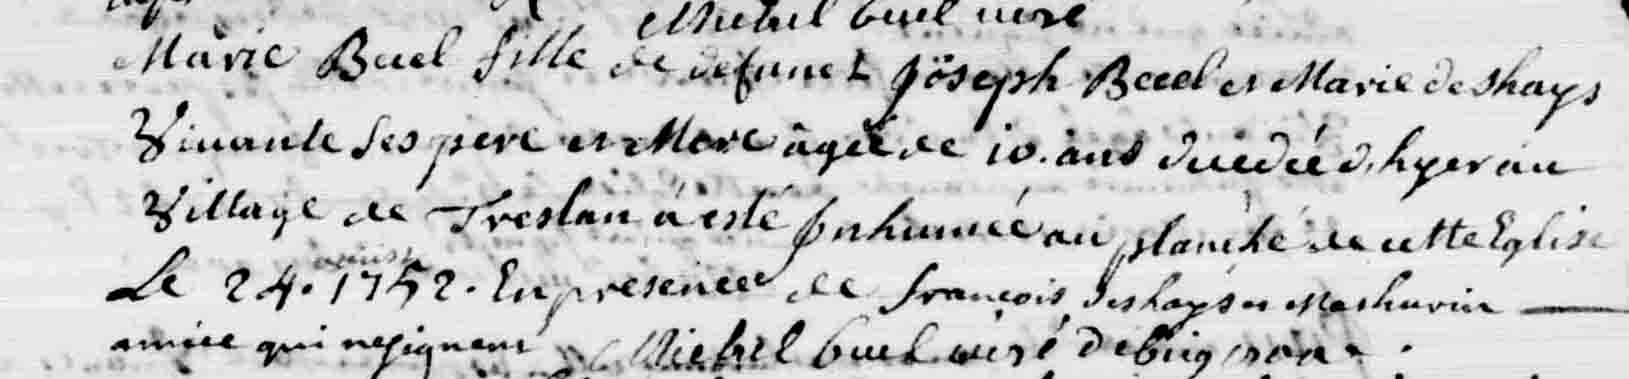 Michel buel
Marie Buel fille de defunct Joseph Buel et Marie deshays
Vivante ses pere et Mere âgée de 10. ans decedée d'hyer au
Village de Treslan à esté Inhumée au planché de cette Eglise
Le 24. aoust 1752. En presence de francois deshays et Mathurin
qui ne signent Michel buel